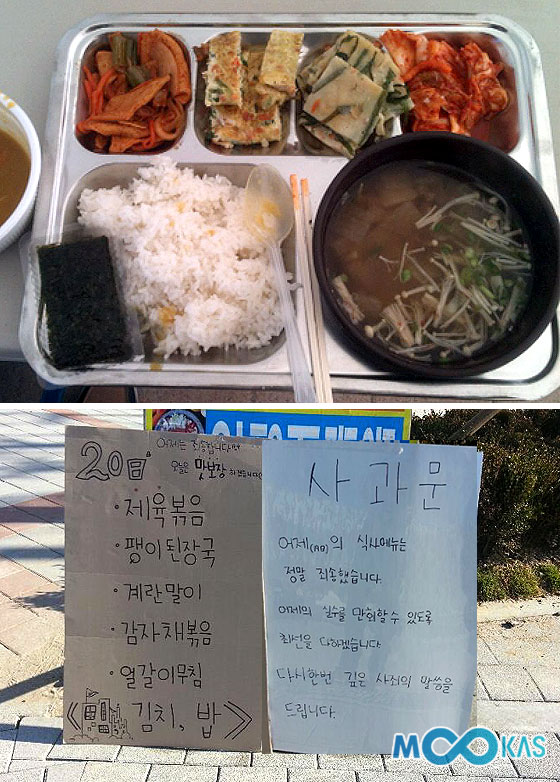 어제는 죄송합니다!!
20일 오늘은 맛보장 하겠습니다!
· 제육볶음
· 팽이된장국
· 계란말이
· 감자채볶음
· 얼갈이무침
김치, 밥
사과문
어제(19일)의 식사메뉴는
정말 죄송했습니다.
어제의 실수를 만회할 수 있도록
최선을 다하겠습니다
다시한번 깊은 사죄의 말씀을
드립니다.
MOOKAS